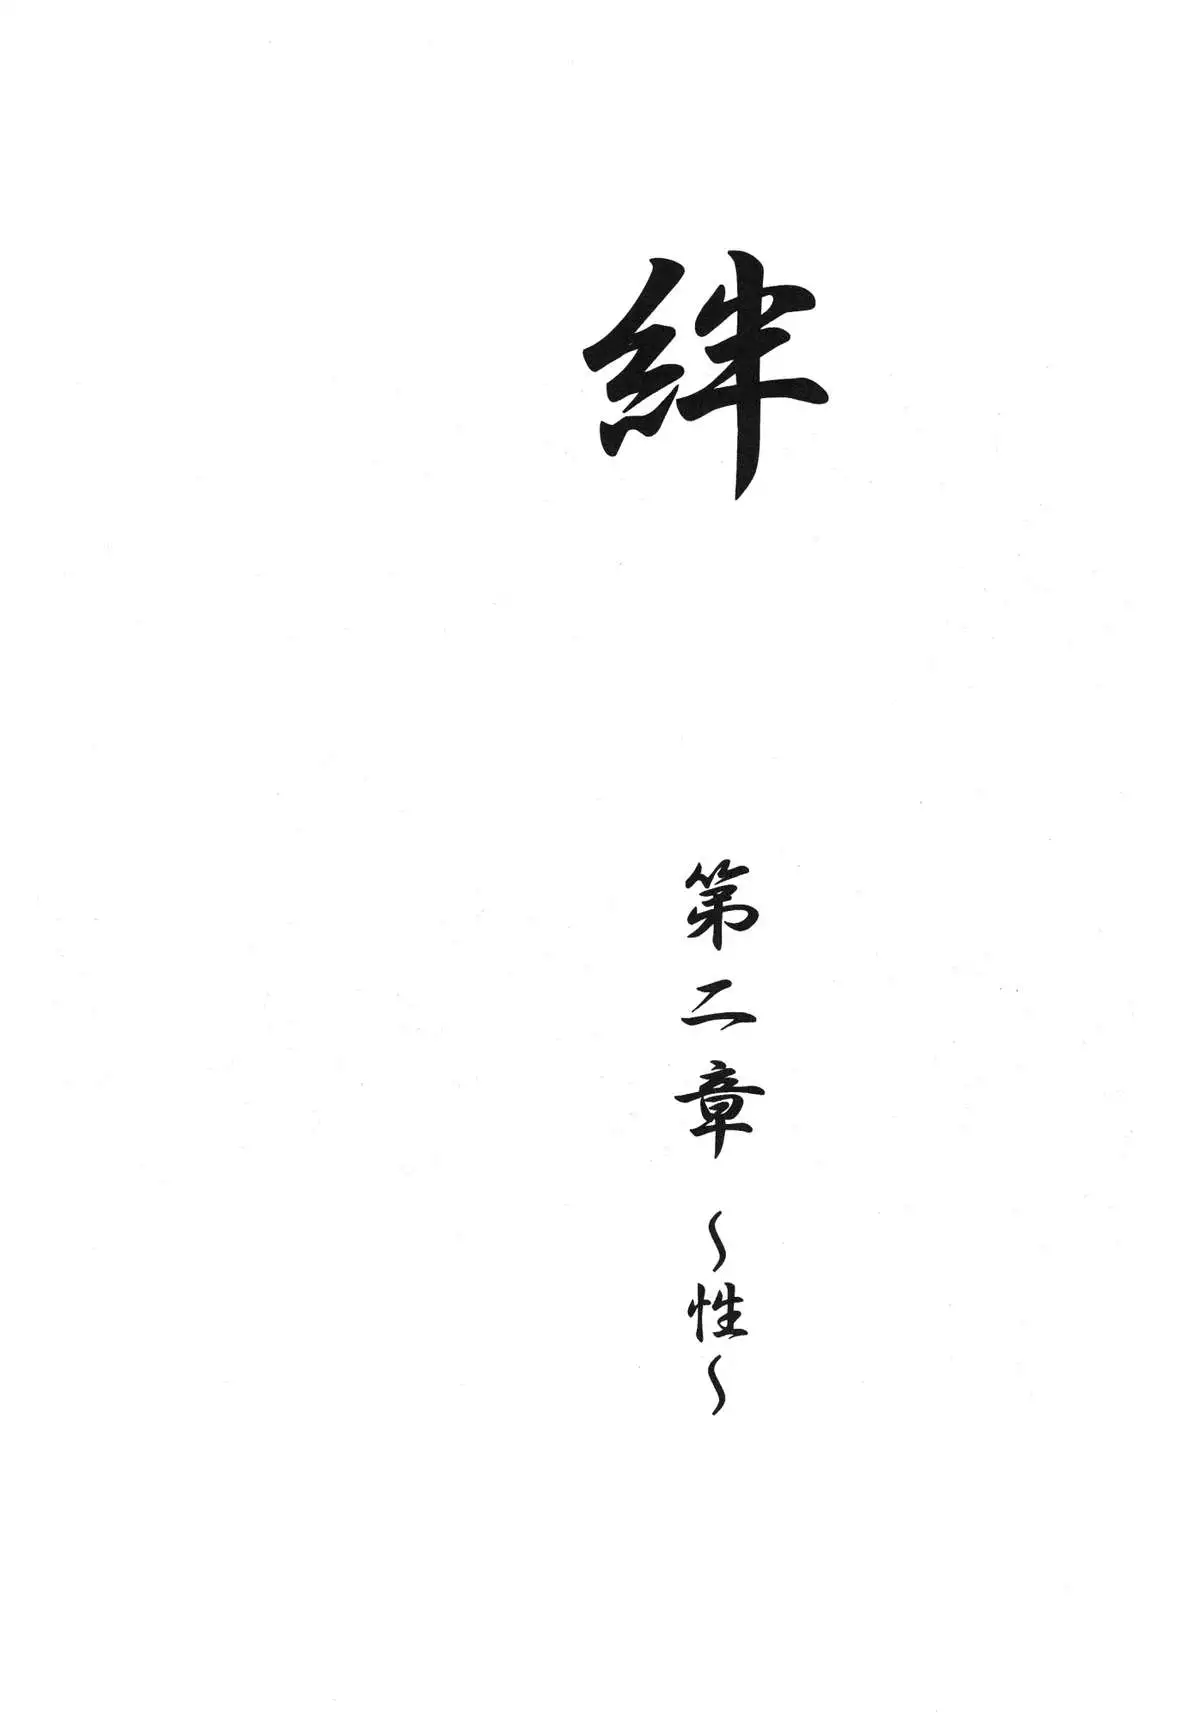 絆
第二章 ～性～